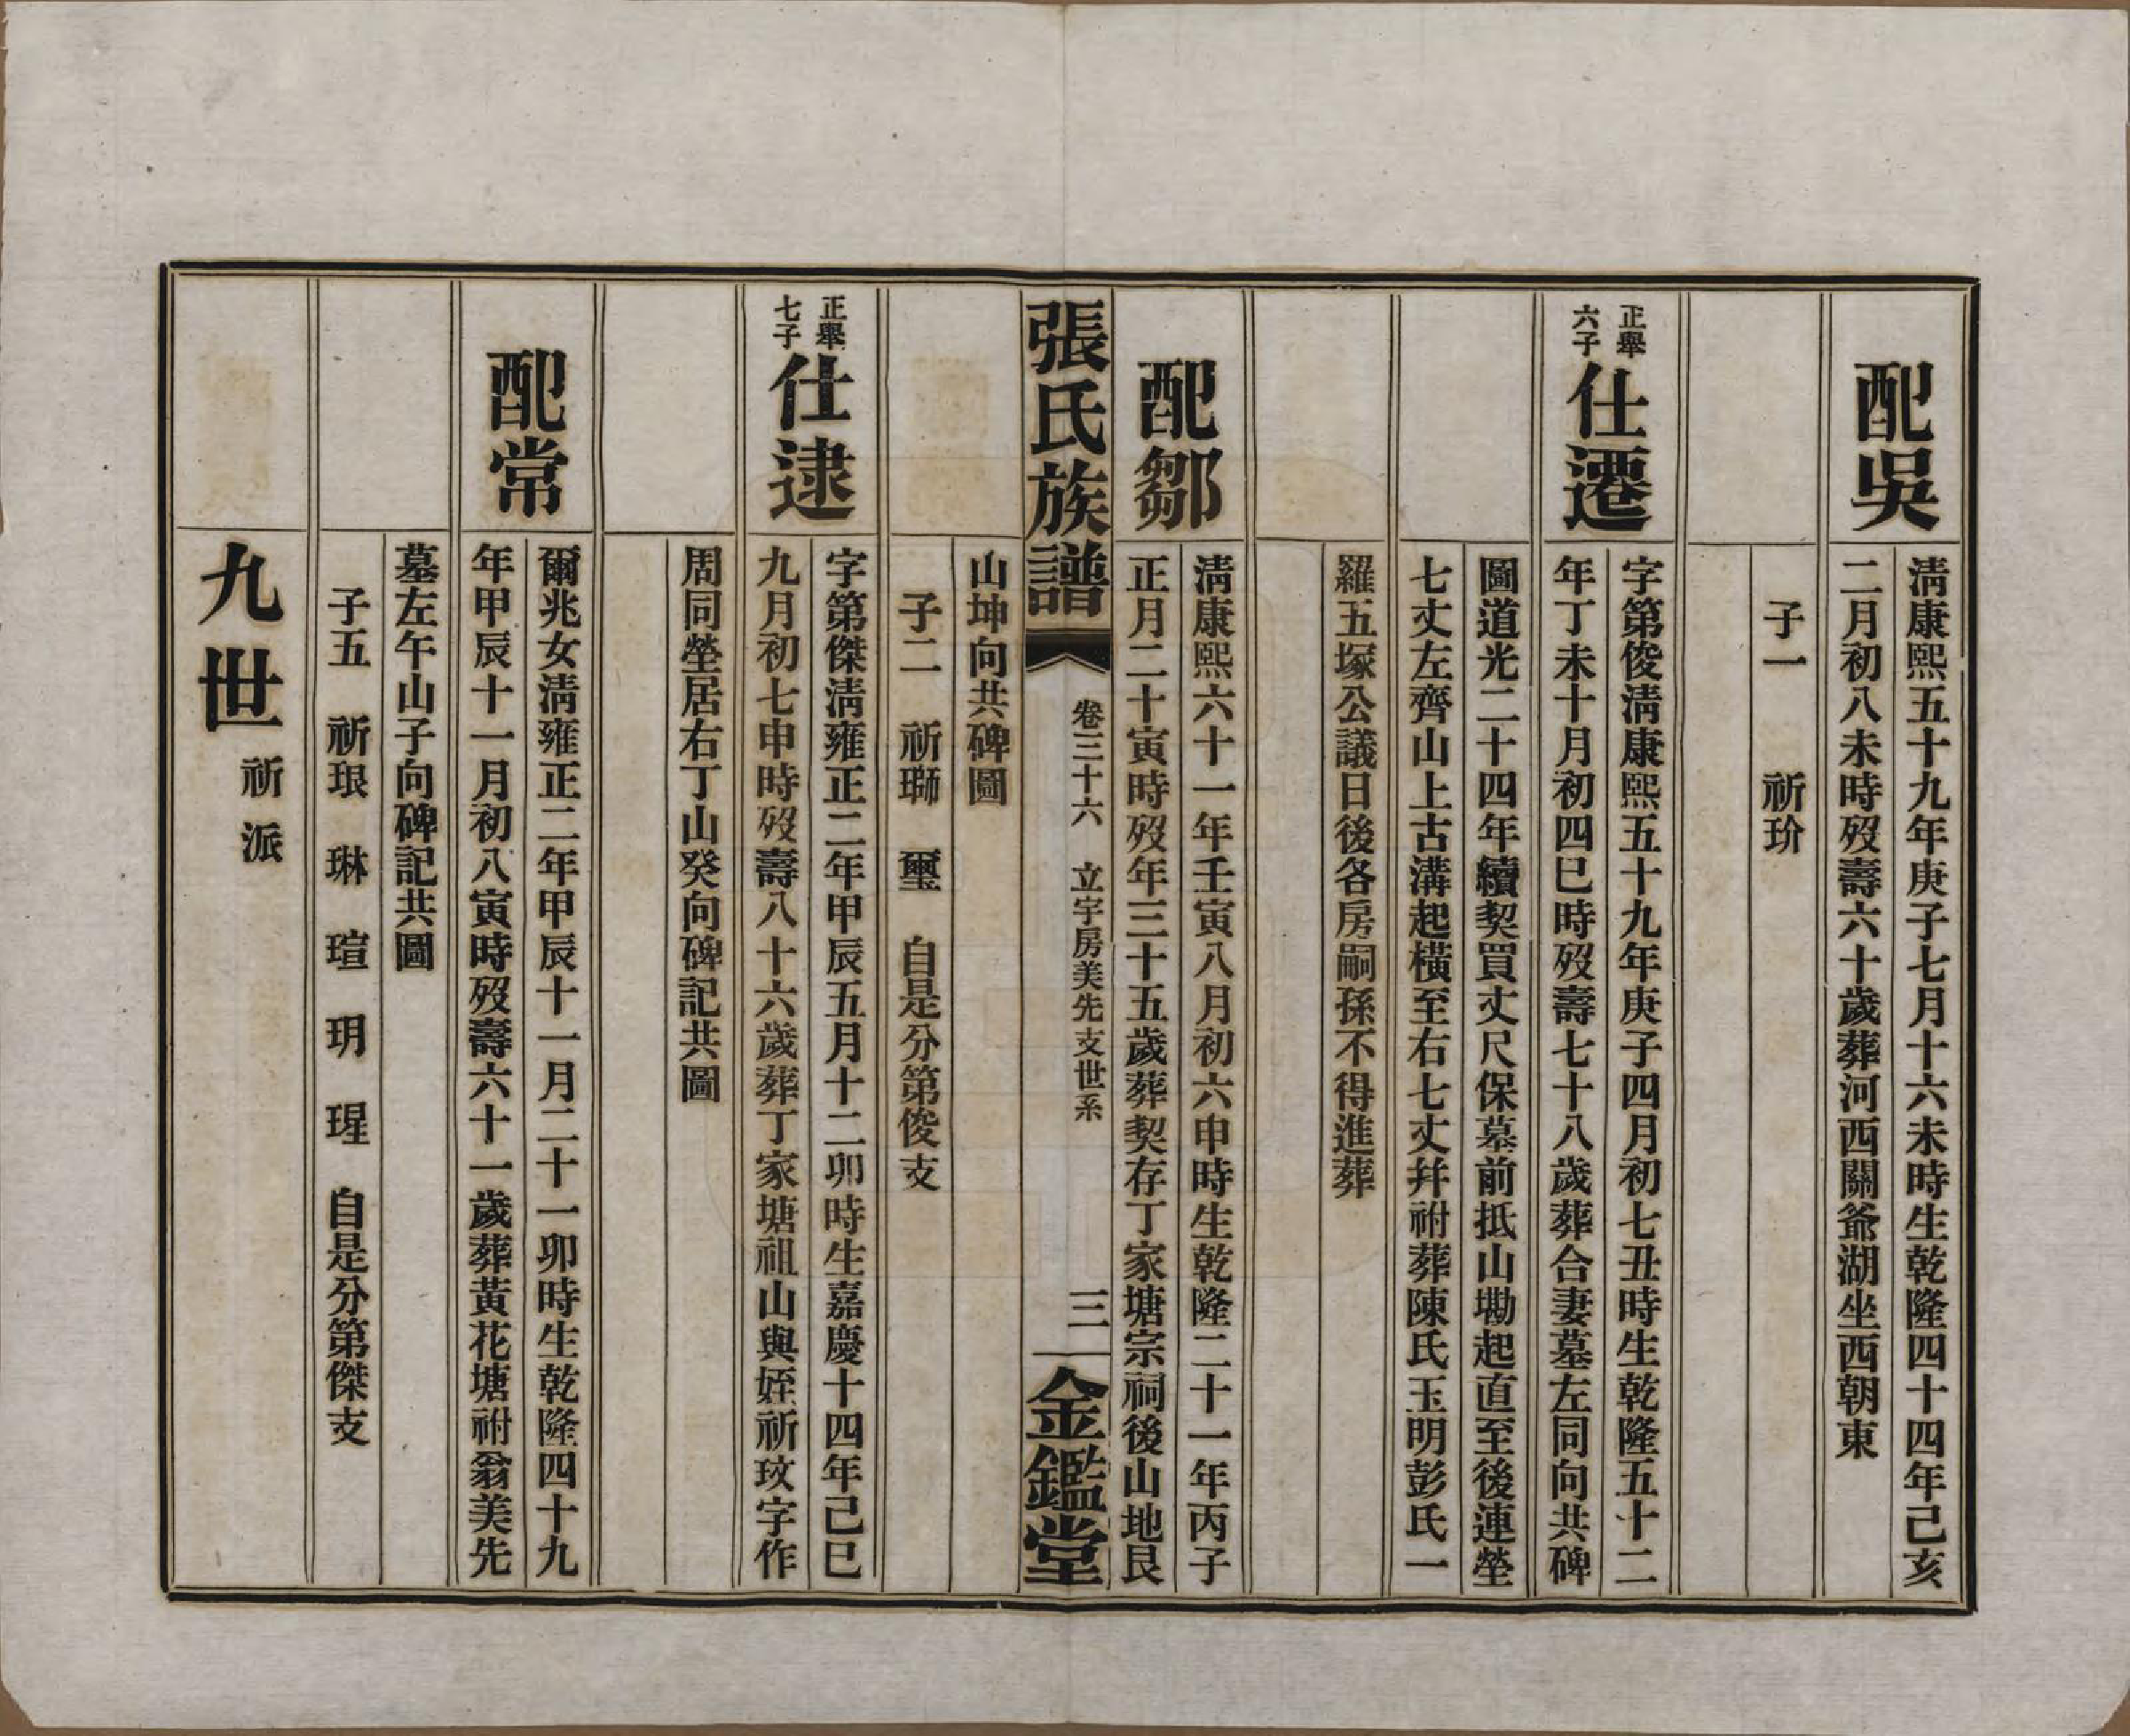 配吳
淸康熙五十九年庚子七月十六未時生乾隆四十四年己亥
二月初八未時歿壽六十歲葬河西關爺湖坐西朝東
子一　祈玠
正舉
六子
仕遷
字第俊淸康熙五十九年庚子四月初七丑時生乾隆五十二
年丁未十月初四巳時歿壽七十八歲葬合妻墓左同向共碑
圖道光二十四年續契買丈尺保墓前抵山勘起直至後連塋
七丈左齊山上古溝起橫至右七丈幷祔葬陳氏玉明彭氏一
羅五塚公議日後各房嗣孫不得進葬
配鄒
淸康熙六十一年壬寅八月初六申時生乾隆二十一年丙子
正月二十寅時歿年三十五歲葬契存丁家塘宗祠後山地艮
張氏族譜
卷三十六　立宇房美先支世系
三
金鑑堂
山坤向共碑圖
子二　祈璛　璽　自是分第俊支
正舉
七子
仕逮
字第傑淸雍正二年甲辰五月十二卯時生嘉慶十四年己巳
九月初七申時歿壽八十六歲葬丁家塘祖山與姪祈玟字作
周同塋居右丁山癸向碑記共圖
配常
爾兆女淸雍正二年甲辰十一月二十一卯時生乾隆四十九
年甲辰十一月初八寅時歿壽六十一歲葬黃花塘祔翁美先
墓左午山子向碑記共圖
子五　祈珢　琳　瑄　玥　瑆　自是分第傑支
九世
祈派